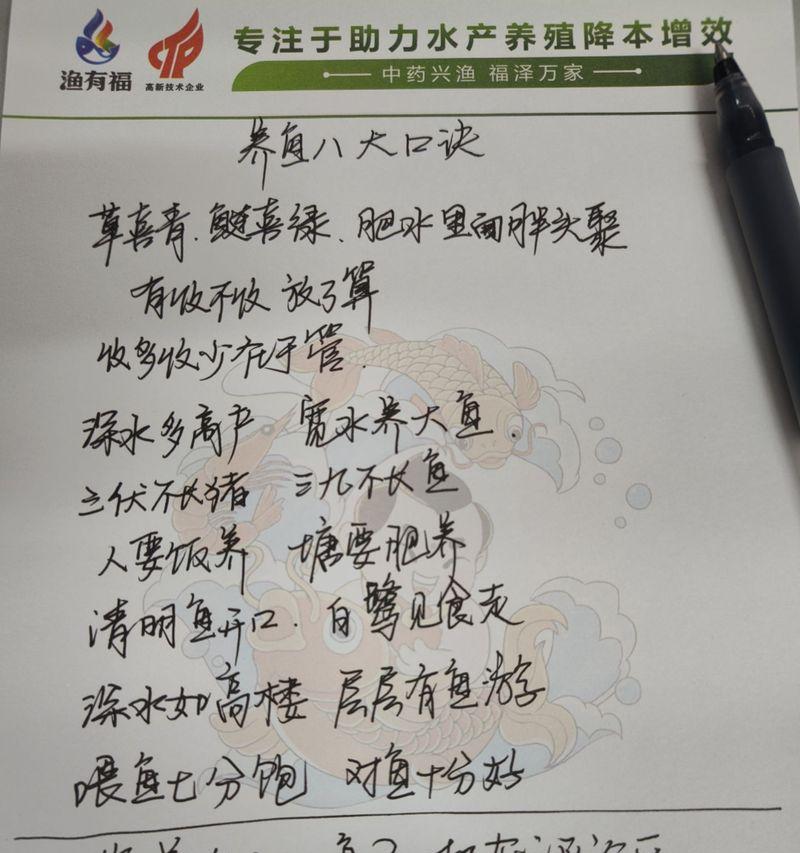 渔有福
CTP
高新技术企业
专注于助力水产养殖降本增效
中药兴渔 福泽万家
养鱼八大口诀
草喜青、鲢喜绿、肥水里面胖头聚
有收不收 放了算
收多收少在于管.
深水多高产 宽水养大鱼
三伏不长猪 三九不长鱼
人要饭养 塘要肥养
清明鱼开口、白鹭见食走
深水如高楼 层层有鱼游
喂鱼七分饱 对鱼十分好